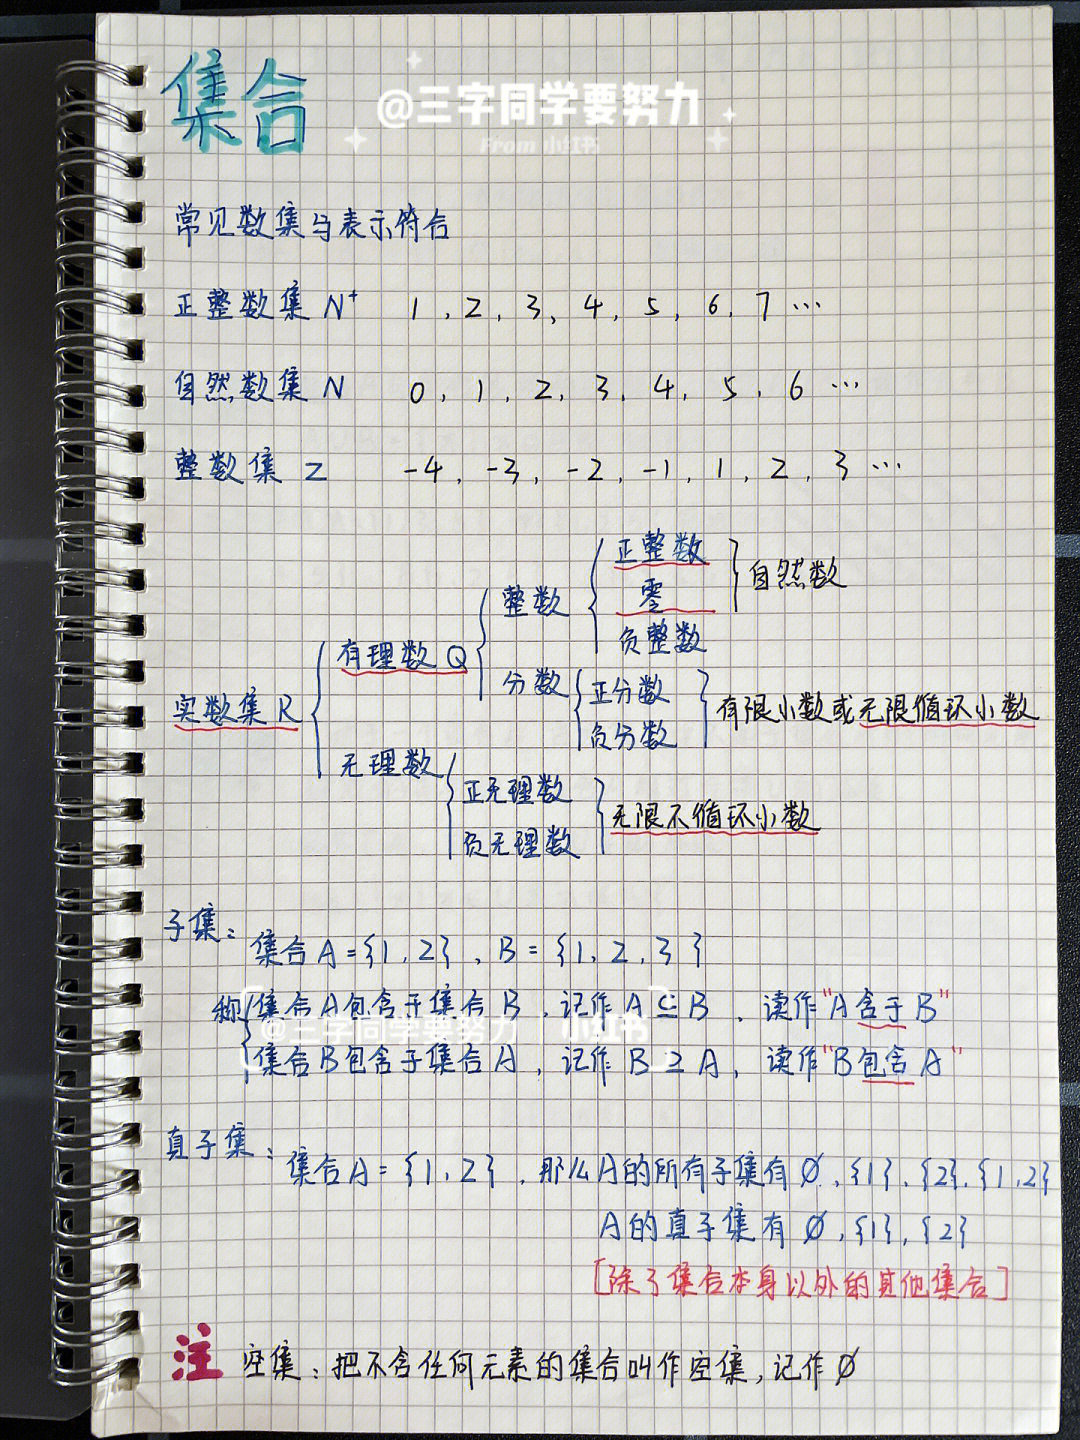 集合
@三字同学要努力
From 小红书
常见数集与表示符合
正整数集 N⁺ 1, 2, 3, 4, 5, 6, 7 …
自然数集 N 0, 1, 2, 3, 4, 5, 6 …
整数集 Z -4, -3, -2, -1, 1, 2, 3 …
正整数
自然数
整数
零
负整数
有理数 Q
分数
正分数
有限小数或无限循环小数
实数集 R
负分数
无理数
正无理数
无限不循环小数
负无理数
子集：
集合 A = {1, 2}, B = {1, 2, 3}
称 集合 A 包含于集合 B, 记作 A ⊆ B, 读作 "A 含于 B"
@三字同学要努力 小红书
集合 B 包含子集合 A, 记作 B ⊇ A, 读作 "B 包含 A"
真子集：
集合 A = {1, 2}, 那么 A 的所有子集有 ∅, {1}, {2}, {1, 2}
A 的真子集有 ∅, {1}, {2}
[除了集合本身以外的其他集合]
注 空集：把不含任何元素的集合叫作空集, 记作 ∅